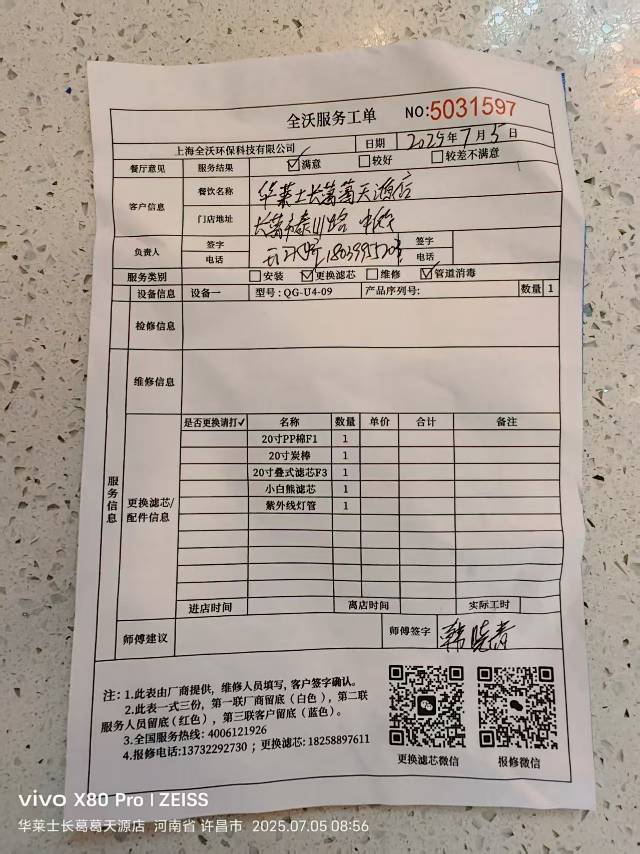 全沃服务工单 NO:5031597
上海全沃环保科技有限公司 日期 2025年7月5日
餐厅意见 服务结果 ☑满意 □较好 □较差不满意
客户信息 餐饮名称 华莱士长葛葛天源店
门店地址 长葛市泰山路中段
负责人 签字 签字
电话 电话
服务类别 □安装 ☑更换滤芯 □维修 ☑管道消毒
设备信息 设备一 型号: QG-U4-09 产品序列号: 数量 1
检修信息
维修信息
服务信息
更换滤芯/
配件信息
是否更换请打✓ 名称 数量 单价 合计 备注
20寸PP棉F1 1
20寸炭棒 1
20寸叠式滤芯F3 1
小白熊滤芯 1
紫外线灯管 1
进店时间 离店时间 实际工时
师傅建议 师傅签字 韩晓青
注：1.此表由厂商提供，维修人员填写, 客户签字确认。
2.此表一式三份，第一联厂商留底（白色），第二联
服务人员留底（红色），第三联客户留底（蓝色）。
3.全国服务热线: 4006121926
4.报修电话:13732292730 ；更换滤芯: 18258897611
更换滤芯微信 报修微信
vivo X80 Pro | ZEISS
华莱士长葛葛天源店 河南省 许昌市 2025.07.05 08:56